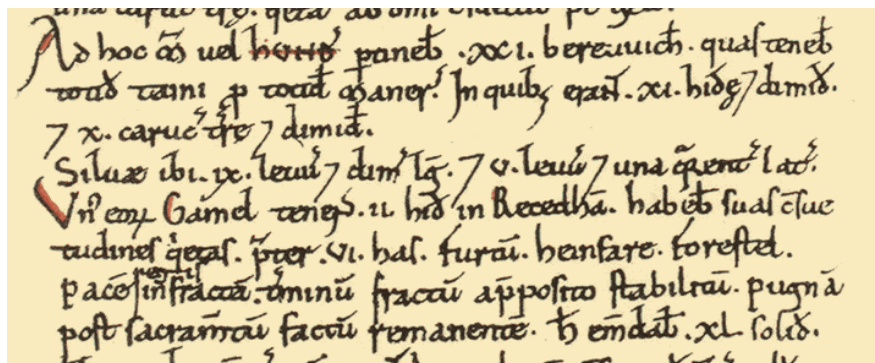 una caruc̄ tr̄e. q̄eta ab om̄i
Ad hoc m̄ uel hund̄ ptineb̄ .xxi. bereuuich. quas teneb̄
totid̄ taini p̱ totid̄ maner̄. In quib; eran̄t .xi. hidę ⁊ dimid̄.
⁊ x. caruc̄ tr̄e ⁊ dimid̄.
Siluæ ibi .ix. leuu᷎ ⁊ dim̄ lḡ. ⁊ v. leuu᷎ ⁊ una q̄rent̄ lat̄.
Vn᷒ eoꝝ Gamel tenens .ii. hid̄ in Recedhā. habeb̄ suas c̄sue
tudines q̇etas. p̄ter .vi. has. furtū. heinfare. forestel.
pacē regis infractā. t̄minū fractū app̄osito stabilitū. pugnā
post sacram̄tū factū remanentē. h̄ em̄dab̄ .xl. solid̄.